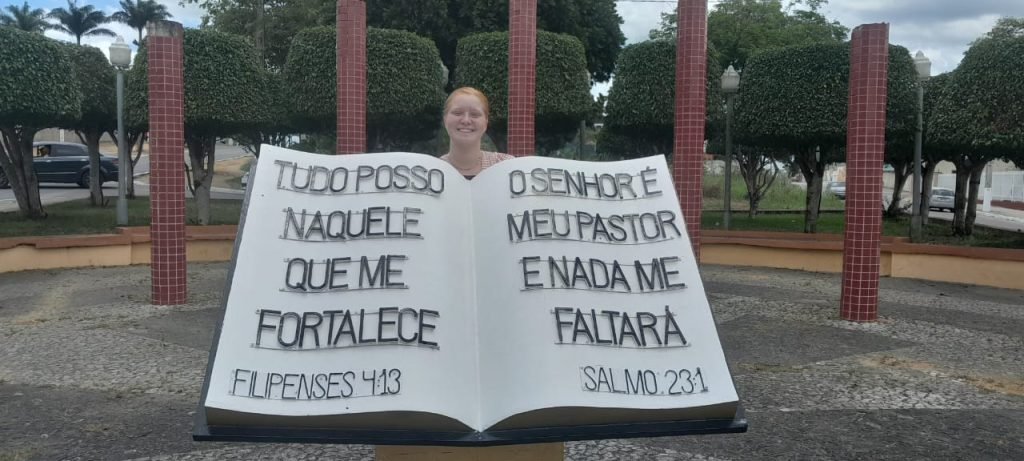 TUDO POSSO
NAQUELE
QUE ME
FORTALECE
FILIPENSES 4:13
O SENHOR É
MEU PASTOR
E NADA ME
FALTARÁ
SALMO 23:1